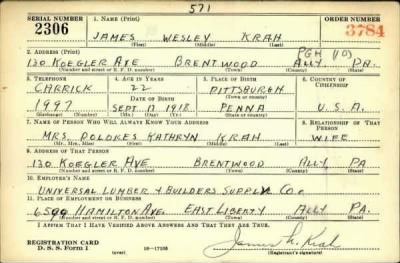 571
SERIAL NUMBER 1. NAME (Print) ORDER NUMBER
2306 JAMES WESLEY KRAH 3784
(First) (Middle) (Last)
2. ADDRESS (Print) PGH (10)
130 KOEGLER AVE BRENTWOOD ALLY. PA.
(Number and street or R. F. D. number) (Town) (County) (State)
3. TELEPHONE 4. AGE IN YEARS 5. PLACE OF BIRTH 6. COUNTRY OF CITIZENSHIP
CARRICK 22 PITTSBURGH
DATE OF BIRTH (Town or county)
1997 SEPT. 17 1918 PENNA U.S.A.
(Exchange) (Number) (Mo.) (Day) (Yr.) (State or country)
7. NAME OF PERSON WHO WILL ALWAYS KNOW YOUR ADDRESS 8. RELATIONSHIP OF THAT PERSON
MRS. DOLORES KATHRYN KRAH WIFE
(Mr., Mrs., Miss) (First) (Middle) (Last)
9. ADDRESS OF THAT PERSON
130 KOEGLER AVE BRENTWOOD ALLY PA
(Number and street or R. F. D. number) (Town) (County) (State)
10. EMPLOYER'S NAME
UNIVERSAL LUMBER & BUILDERS SUPPLY CO.
11. PLACE OF EMPLOYMENT OR BUSINESS
6599 HAMILTON AVE. EAST LIBERTY ALLY PA.
(Number and street or R. F. D. number) (Town) (County) (State)
I AFFIRM THAT I HAVE VERIFIED ABOVE ANSWERS AND THAT THEY ARE TRUE.
REGISTRATION CARD
D. S. S. Form 1 (over) 16—17105 James W. Krah
(Registrant's signature)